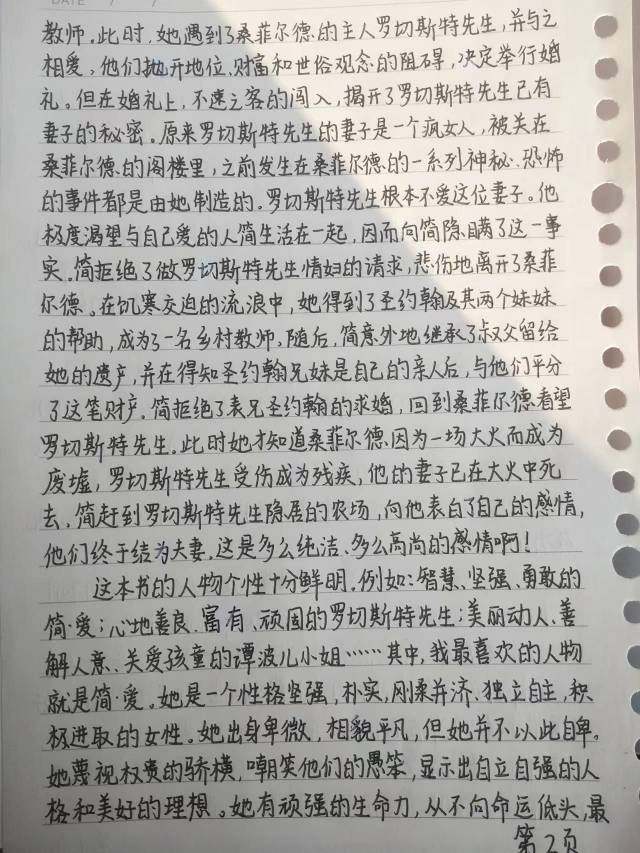 DATE / /
教师。此时，她遇到了桑菲尔德的主人罗切斯特先生，并与之
相爱，他们抛开地位、财富和世俗观念的阻碍，决定举行婚
礼。但在婚礼上，不速之客的闯入，揭开了罗切斯特先生已有
妻子的秘密。原来罗切斯特先生的妻子是一个疯女人，被关在
桑菲尔德的阁楼里，之前发生在桑菲尔德的一系列神秘、恐怖
的事件都是由她制造的。罗切斯特先生根本不爱这位妻子。他
极度渴望与自己爱的人简生活在一起，因而向简隐瞒了这一事
实。简拒绝了做罗切斯特先生情妇的请求，悲伤地离开了桑菲
尔德。在饥寒交迫的流浪中，她得到了圣约翰及其两个妹妹
的帮助，成为了一名乡村教师，随后，简意外地继承了叔父留给
她的遗产，并在得知圣约翰兄妹是自己的亲人后，与他们平分
了这笔财产。简拒绝了表兄圣约翰的求婚，回到桑菲尔德看望
罗切斯特先生。此时她才知道桑菲尔德因为一场大火而成为
废墟，罗切斯特先生受伤成为残疾，他的妻子已在大火中死
去，简赶到罗切斯特先生隐居的农场，向他表白了自己的感情，
他们终于结为夫妻。这是多么纯洁、多么高尚的感情啊！
这本书的人物个性十分鲜明。例如：智慧、坚强、勇敢的
简·爱；心地善良、富有、顽固的罗切斯特先生；美丽动人、善
解人意、关爱孩童的谭波儿小姐……其中，我最喜欢的人物
就是简·爱。她是一个性格坚强，朴实，刚柔并济、独立自主，积
极进取的女性。她出身卑微，相貌平凡，但她并不以此自卑。
她蔑视权贵的骄横，嘲笑他们的愚笨，显示出自立自强的人
格和美好的理想。她有顽强的生命力，从不向命运低头，最
第2页